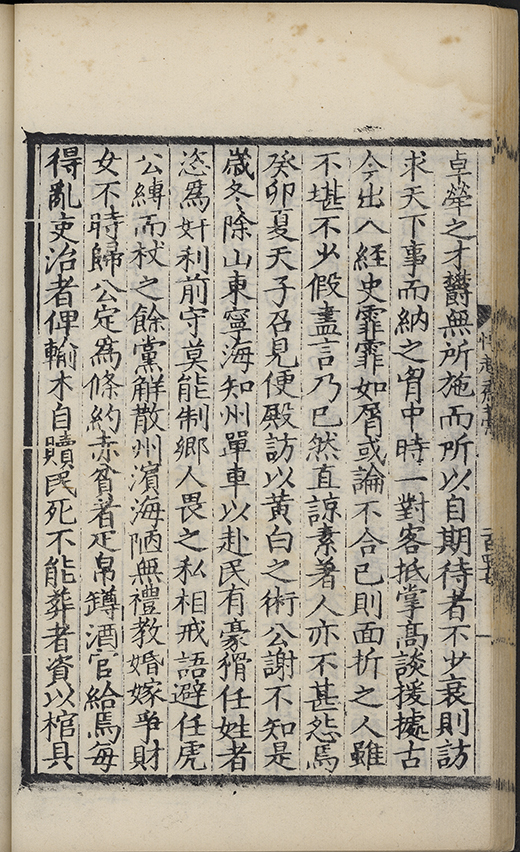 卓犖之才欝無所施而所以自期待者不少衰則訪
求天下事而納之胷中時一對客抵掌髙談援據古
今出入經史霏霏如屑或論不合已則面折之人雖
不堪不少假盡言乃已然直諒素著人亦不甚怨焉
癸卯夏天子召見便殿訪以黄白之術公謝不知是
歳冬除山東寧海知州單車以赴民有豪猾任姓者
恣爲奸利前守莫能制鄉人畏之私相戒語避任虎
公縳而杖之餘黨觧散州濱海陋無禮教婚嫁爭財
女不時歸公定爲條約赤貧者疋帛罇酒官給焉每
得亂吏治者俾輸木自贖民死不能葬者資以棺具